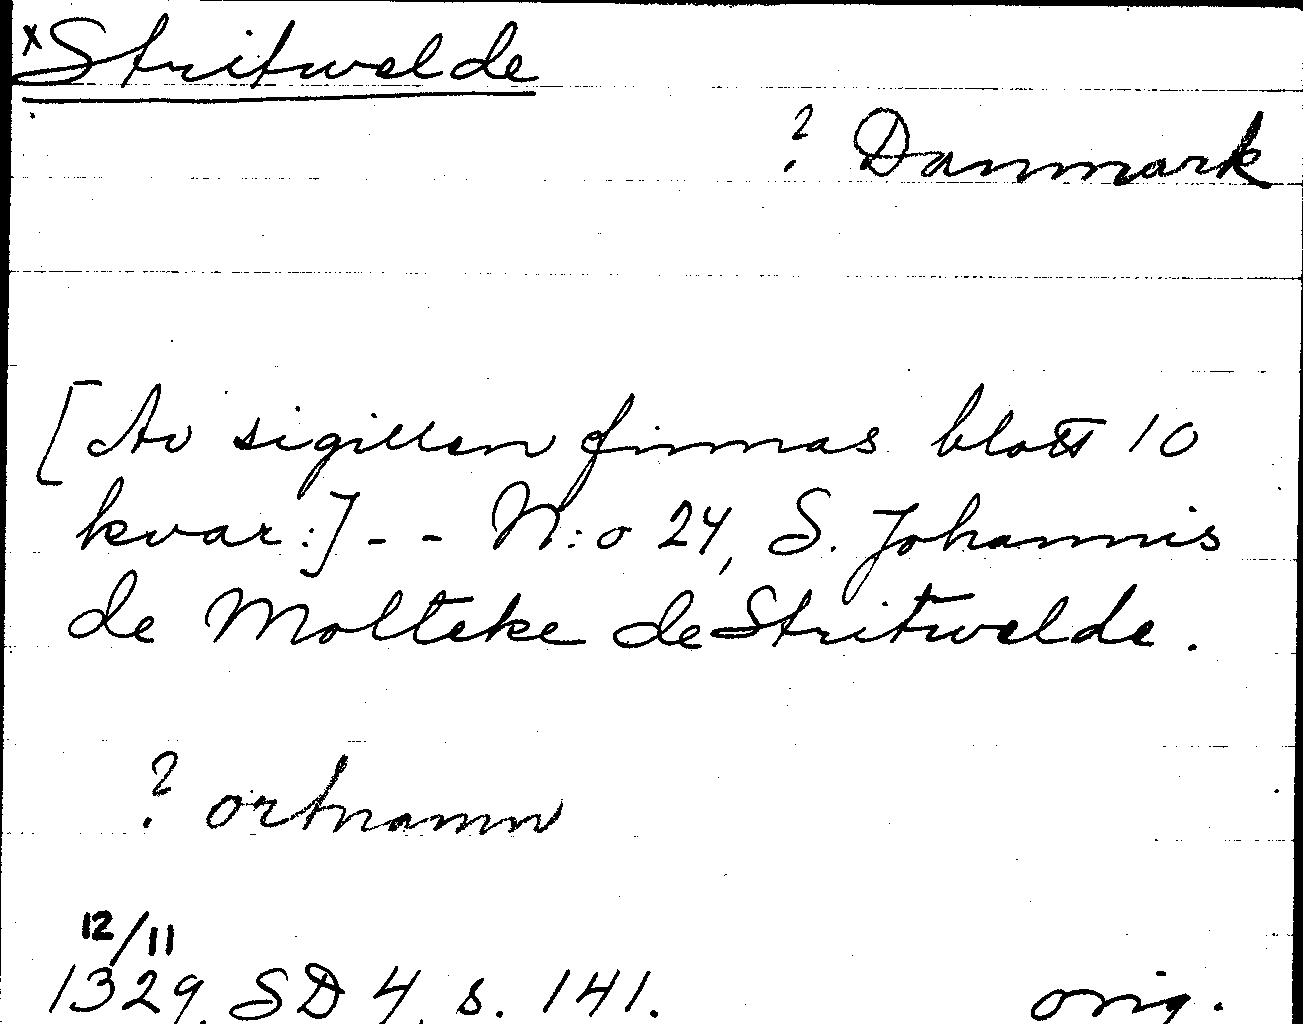 x Stritwelde
? Danmark
[Av sigillen finnas blott 10
kvar:] - - N:o 24, S. Johannis
de Molteke de Stritwelde.
? ortnamn
12/11
1329. SD 4, s. 141. orig.